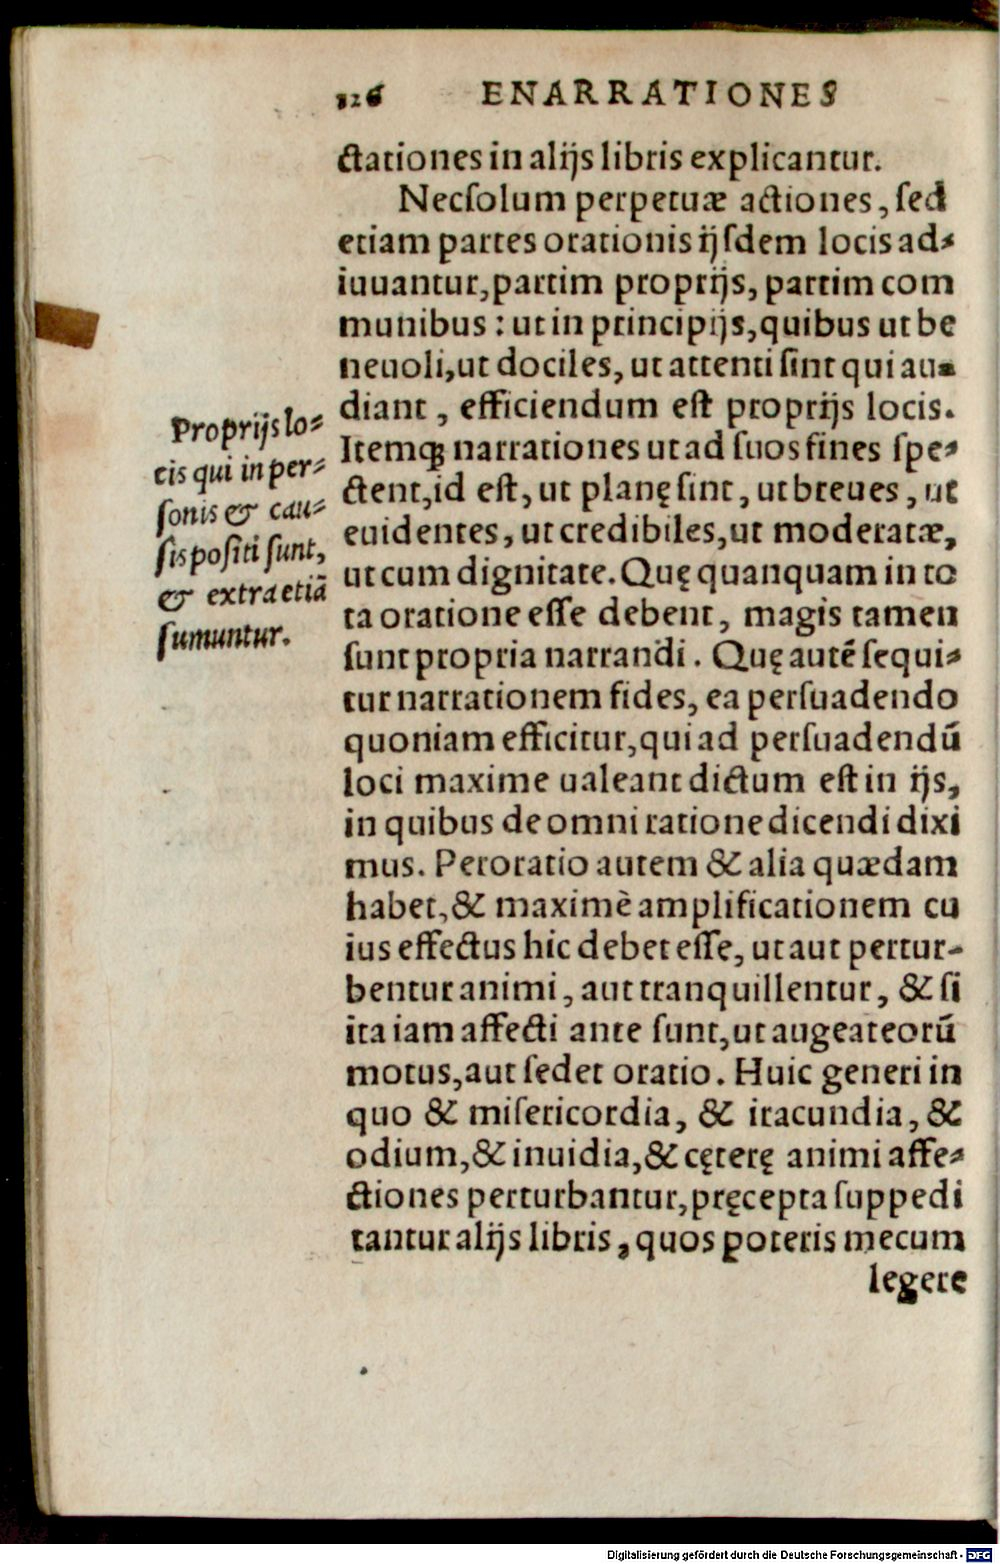 126 ENARRATIONES
ctationes in alijs libris explicantur.
Necſolum perpetuæ actiones, ſed
etiam partes orationis ijſdem locis ad⸗
iuuantur, partim proprijs, partim com
munibus: ut in principijs, quibus ut be
neuoli, ut dociles, ut attenti ſint qui au⸗
diant, efficiendum eſt proprijs locis.
Itemq; narrationes ut ad ſuos fines ſpe⸗
ctent, id eſt, ut planę ſint, ut breues, ut
euidentes, ut credibiles, ut moderatæ,
ut cum dignitate. Quę quanquam in to
ta oratione eſſe debent, magis tamen
ſunt propria narrandi. Quę autẽ ſequi⸗
tur narrationem fides, ea perſuadendo
quoniam efficitur, qui ad perſuadendũ
loci maxime ualeant dictum eſt in ijs,
in quibus de omni ratione dicendi dixi
mus. Peroratio autem & alia quædam
habet, & maximè amplificationem cu
ius effectus hic debet eſſe, ut aut pertur-
bentur animi, aut tranquillentur, & ſi
ita iam affecti ante ſunt, ut augeat eorũ
motus, aut ſedet oratio. Huic generi in
quo & miſericordia, & iracundia, &
odium, & inuidia, & cęterę animi affe⸗
ctiones perturbantur, pręcepta ſuppedi
tantur alijs libris, quos poteris mecum
legere
Proprijs lo⸗
cis qui in per⸗
ſonis & cau⸗
ſis poſiti ſunt,
& extra etiã
ſumuntur.
Digitalisierung gefördert durch die Deutsche Forschungsgemeinschaft - DFG